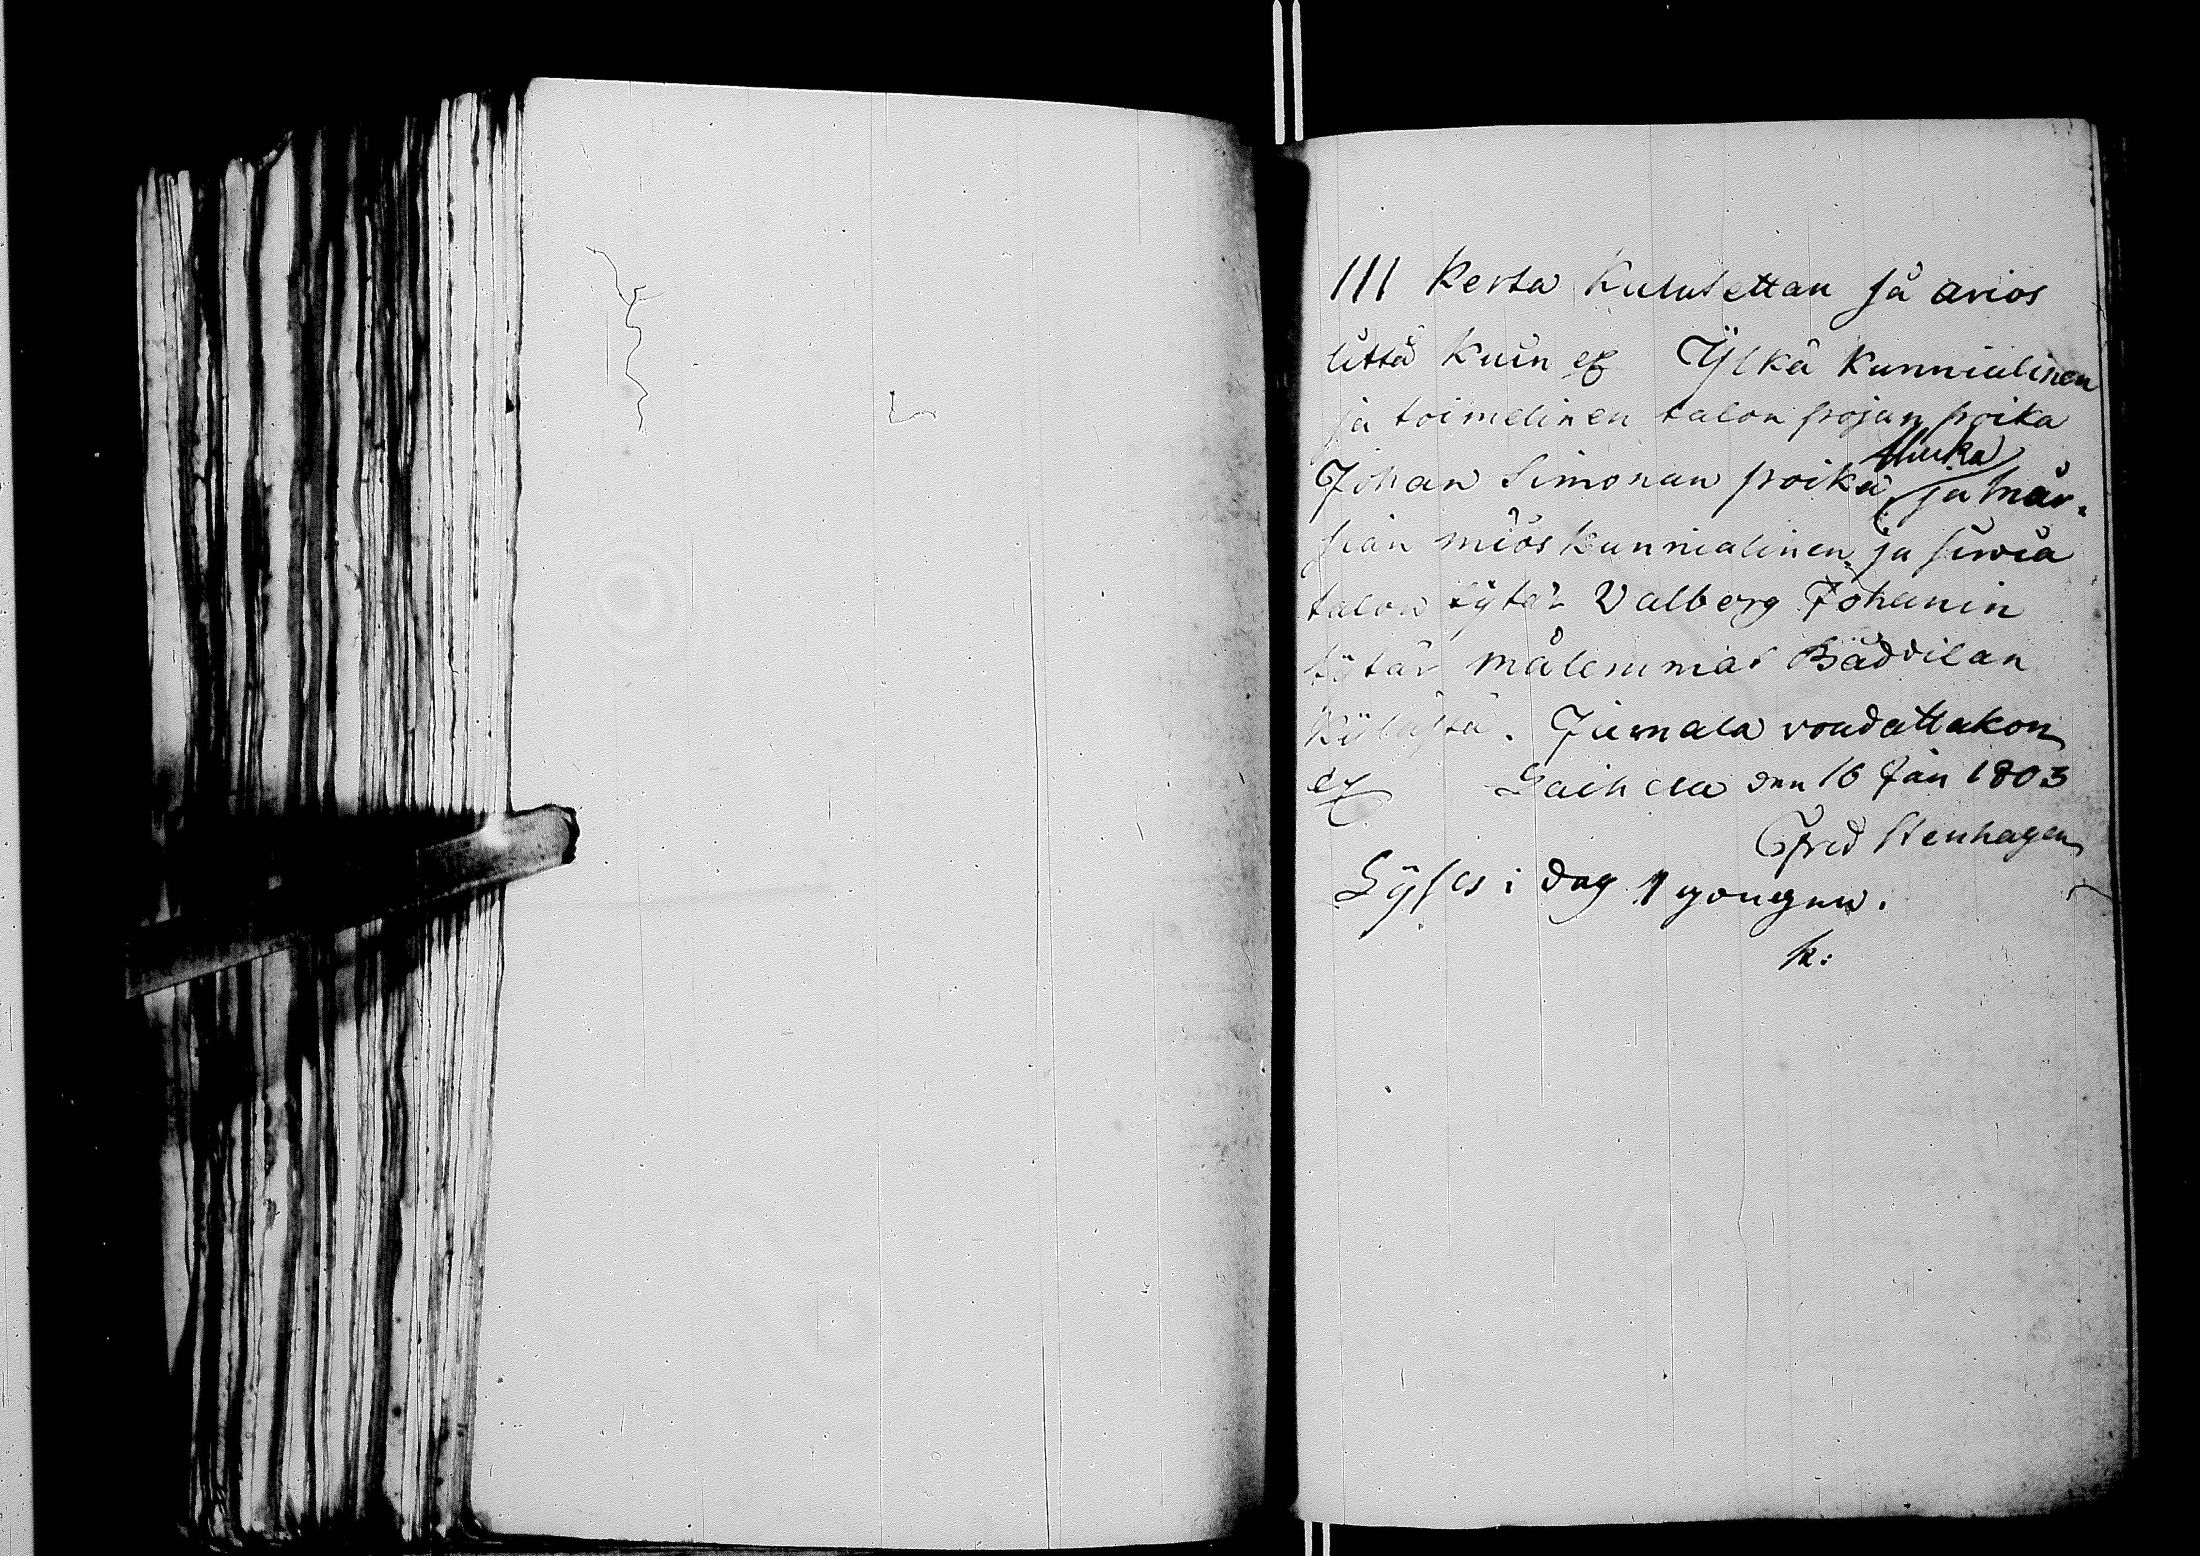 III Kerta Kulutettan ja avios
littå kuin ex Ÿlkä kunnialinen
ja toimelinen talon pojan poika
Johan Simonan poika Muka ja mår-
sian miös kunnialinen ja sirviä
talon tÿtär Valberg Johanin
tÿtär målemmat Bäddilan
Kÿlästä. Jumala voudattakon
ex Laihela den 16 Jan 1803
Gfred Stenhagen
Lÿses i dag 1 gongen.
k: